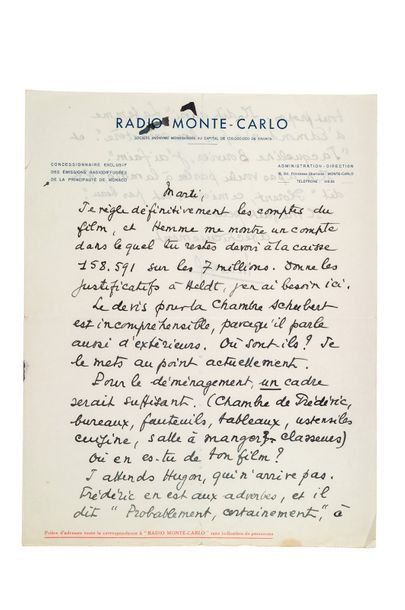 RADIO MONTE-CARLO
SOCIÉTÉ ANONYME MONÉGASQUE AU CAPITAL DE FRANCS
CONCESSIONNAIRE EXCLUSIF
DES ÉMISSIONS RADIODIFFUSÉES
DE LA PRINCIPAUTÉ DE MONACO
ADMINISTRATION - DIRECTION
MONTE-CARLO
TÉLÉPHONE
Marti,
Je règle définitivement les comptes du
film, et Hemme me montre un compte
dans lequel tu restes devoir à la caisse
158.591 sur les 7 millions. Donne les
justificatifs à Heldt, j'en ai besoin ici.
Le devis pour la Chambre Schubert
est incompréhensible, parcequ'il parle
aussi d'extérieurs. Où sont ils? Je
le mets au point actuellement.
Pour le déménagement, un cadre
serait suffisant. (Chambre de Frédéric,
bureaux, fauteuils, tableaux, ustensiles
cuisine, salle à manger, classeurs)
Où en es-tu de ton film?
J'attends Hugon, qui n'arrive pas.
Frédéric en est aux adverbes, et il
dit "Probablement, certainement," à
Prière d'adresser toute la correspondance à "RADIO MONTE-CARLO" sans indication de personnes